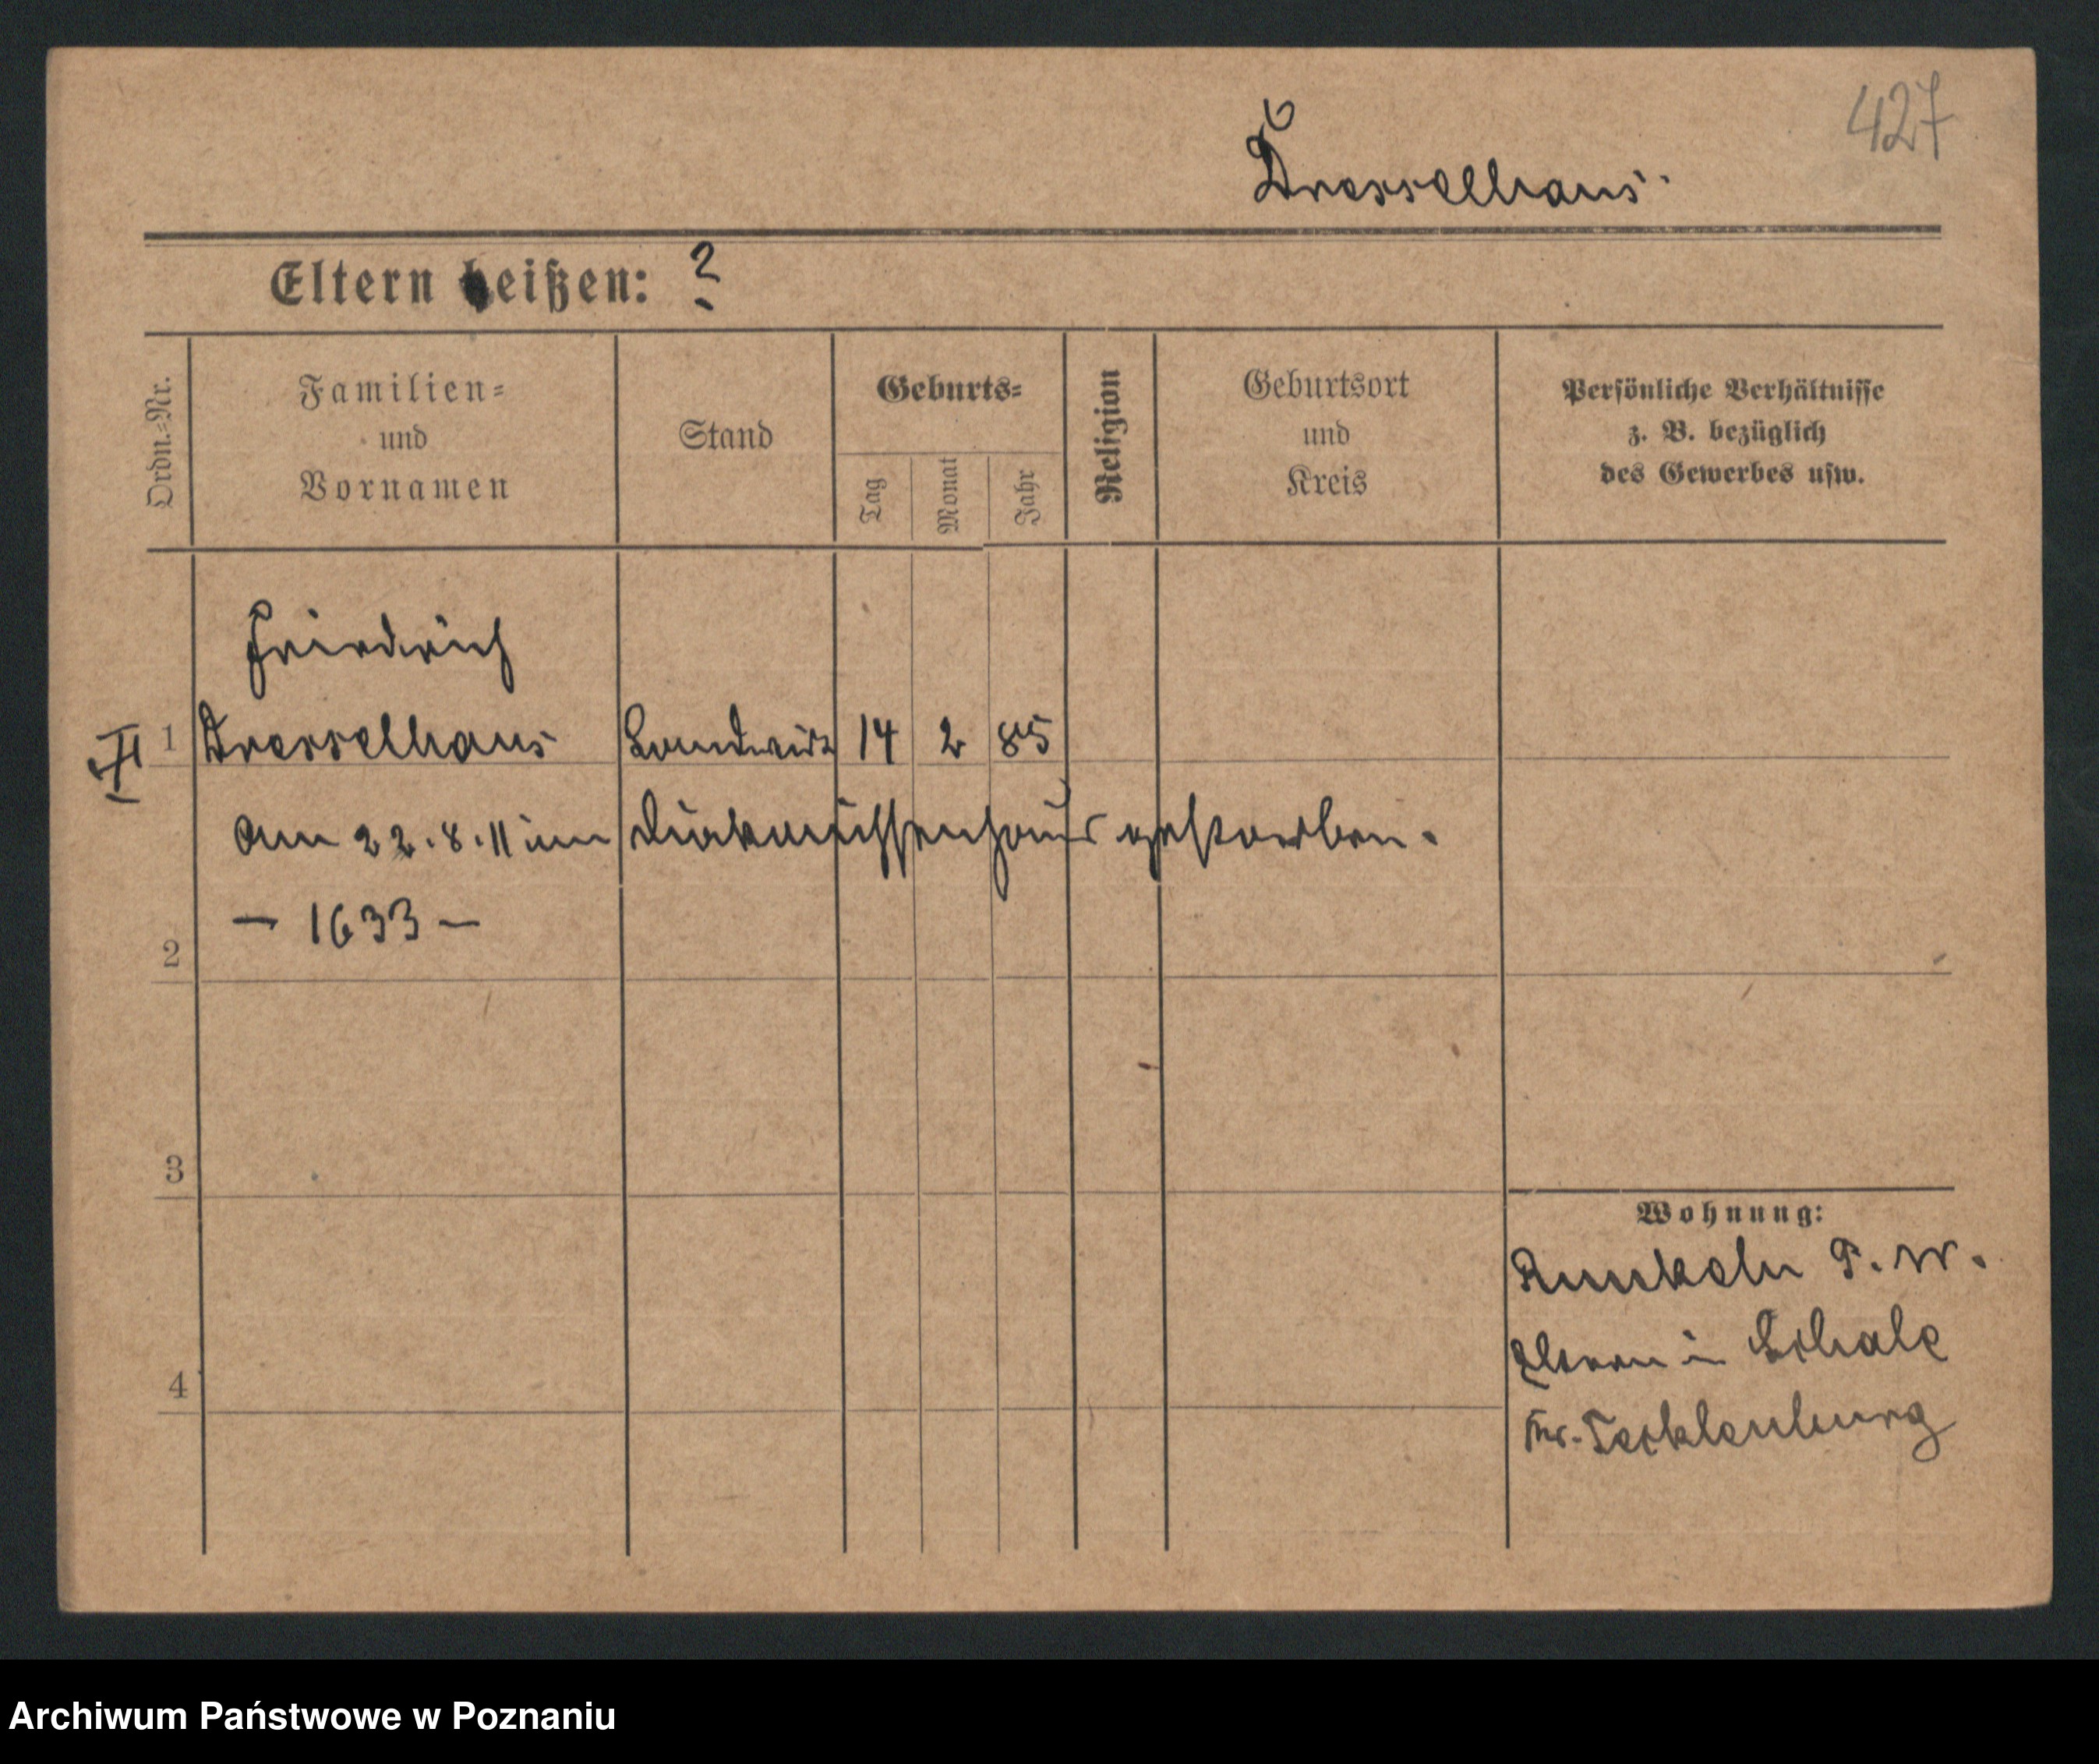 427
Dresselhaus.
Eltern heißen: ?
Ordn.-Nr.
Familien- und Vornamen
Stand
Geburts-
Tag
Monat
Jahr
Religion
Geburtsort und Kreis
Persönliche Verhältnisse
z. B. bezüglich
des Gewerbes usw.
Friedrich
1 Dresselhaus Landwirt 14 2 85
Am 22.8.11 im Diakonissenhaus gestorben.
— 1633 —
2
3
4
Wohnung:
P. W.
Eltern in Schale
Kr. Tecklenburg
Archiwum Państwowe w Poznaniu